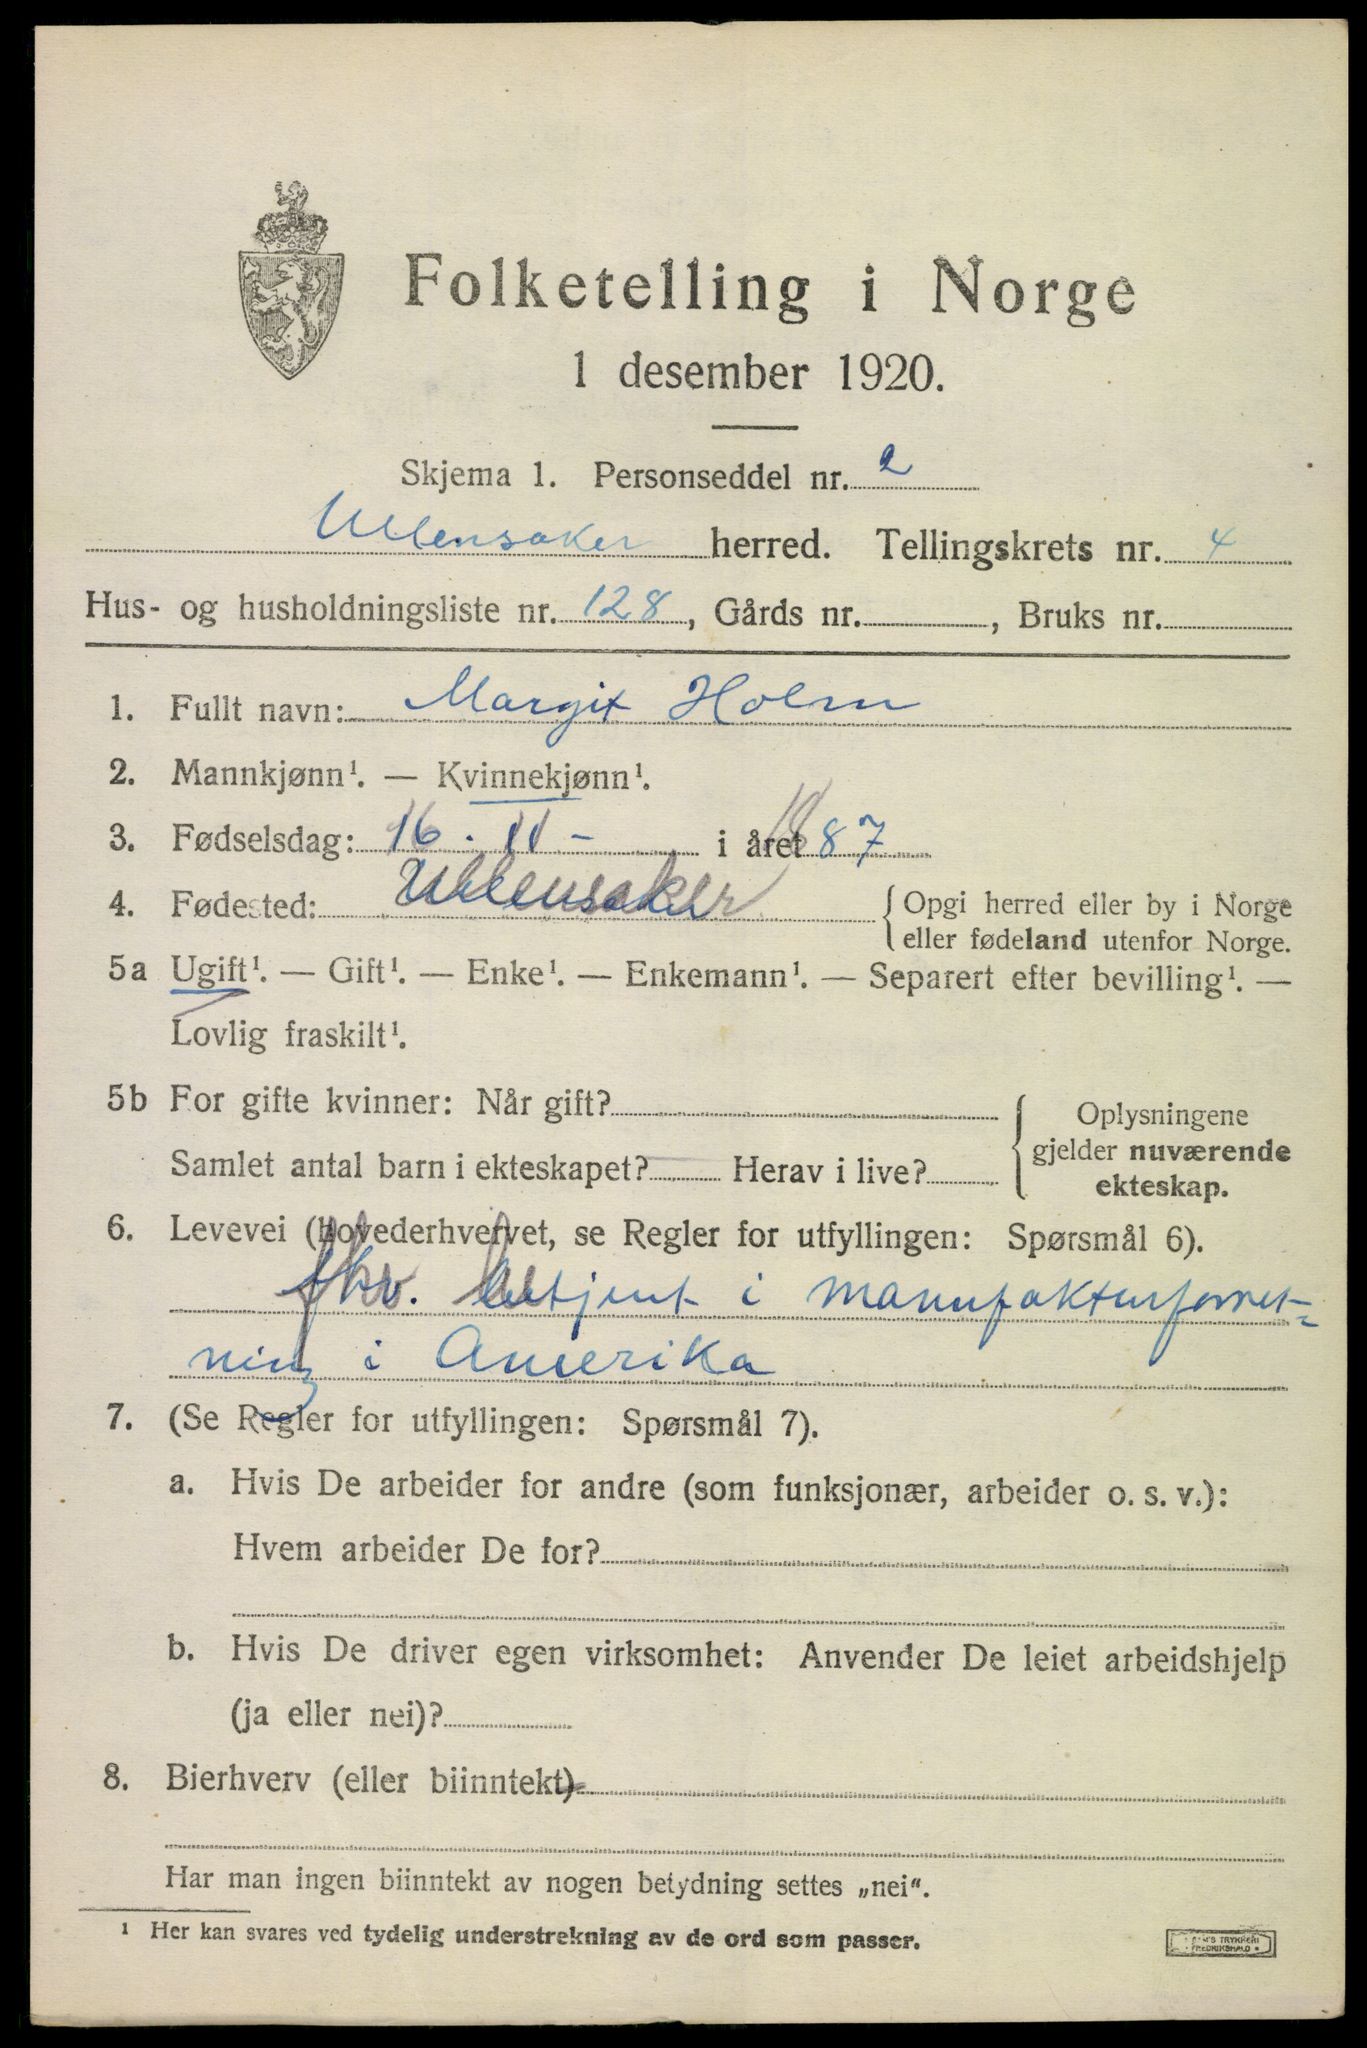 Folketelling i Norge
1 desember 1920.
Skjema 1. Personseddel nr. 2
Ullensaker herred. Tellingskrets nr. 4
Hus- og husholdningsliste nr. 128, Gårds nr. , Bruks nr.
1. Fullt navn: Margit Holm
2. Mannkjønn¹. — Kvinnekjønn¹.
3. Fødselsdag: 16. 11 - i året 1887
4. Fødested: Ullensaker { Opgi herred eller by i Norge
eller fødeland utenfor Norge.
5a Ugift¹. — Gift¹. — Enke¹. — Enkemann¹. — Separert efter bevilling¹. —
Lovlig fraskilt¹.
5b For gifte kvinner: Når gift? { Oplysningene
gjelder nuværende
Samlet antal barn i ekteskapet? Herav i live?
ekteskap.
6. Levevei (hovederhvervet, se Regler for utfyllingen: Spørsmål 6).
fhv. betjent i manufakturforret-
ning i Amerika
7. (Se Regler for utfyllingen: Spørsmål 7).
a. Hvis De arbeider for andre (som funksjonær, arbeider o. s. v.):
Hvem arbeider De for?
b. Hvis De driver egen virksomhet: Anvender De leiet arbeidshjelp
(ja eller nei)?
8. Bierhverv (eller biinntekt)
Har man ingen biinntekt av nogen betydning settes „nei“.
¹ Her kan svares ved tydelig understrekning av de ord som passer.
TRYKKERI
FREDRIKSHALD